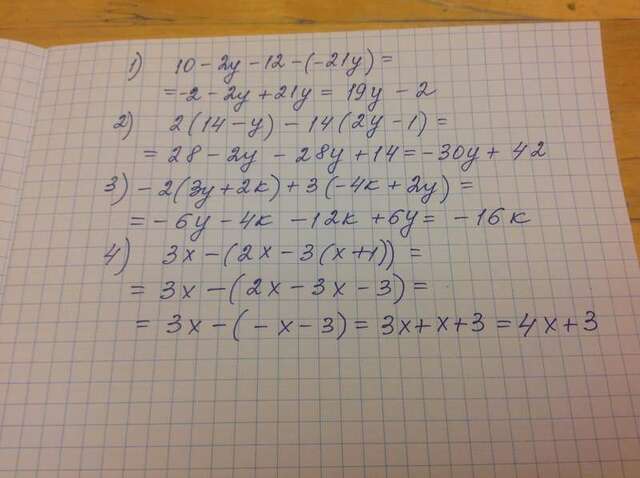 1) 10 - 2y - 12 - (-21y) =
= -2 - 2y + 21y = 19y - 2
2) 2(14 - y) - 14(2y - 1) =
= 28 - 2y - 28y + 14 = -30y + 42
3) - 2(3y + 2k) + 3(-4k + 2y) =
= - 6y - 4k - 12k + 6y = - 16k
4) 3x - (2x - 3(x + 1)) =
= 3x - (2x - 3x - 3) =
= 3x - (- x - 3) = 3x + x + 3 = 4x + 3